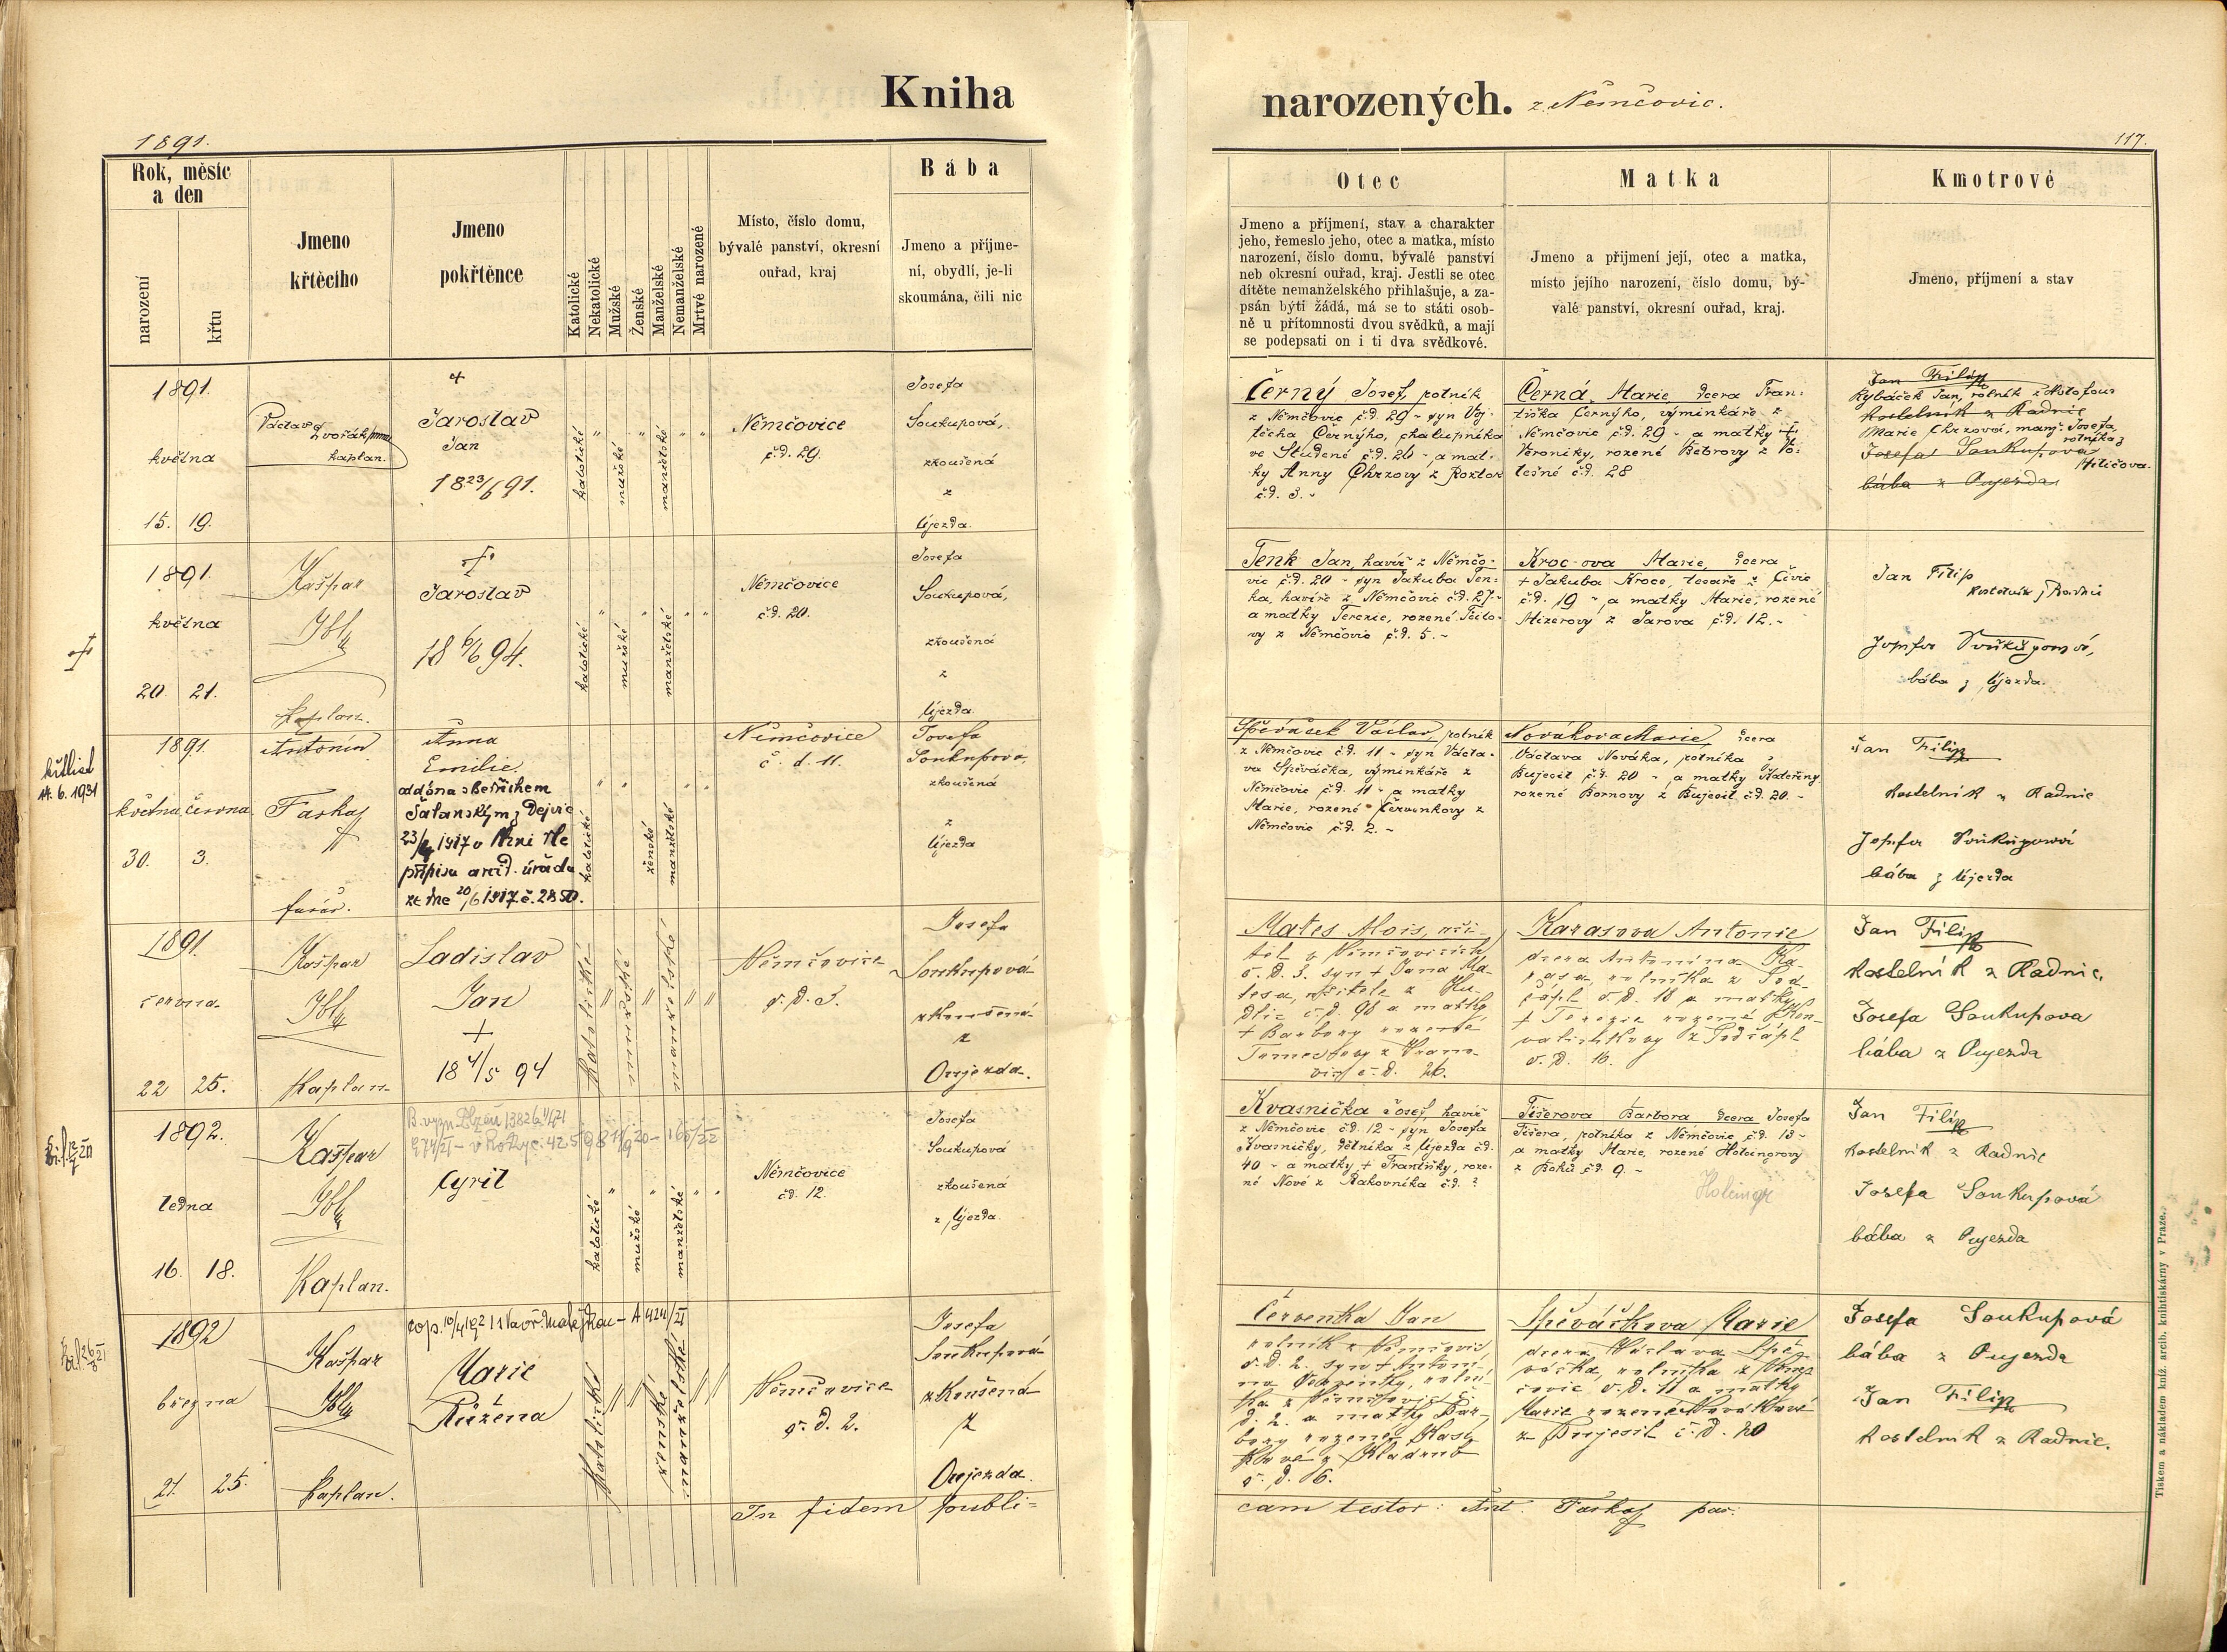 Kniha
narozených. z Němčovic.
1891.
117.
Rok, měsíc
a den
narození
křtu
Jmeno
křtěcího
Jmeno
pokřtěnce
Katolické
Nekatolické
Mužské
Ženské
Manželské
Nemanželské
Mrtvé narozené
Místo, číslo domu,
bývalé panství, okresní
ouřad, kraj
Bába
Jmeno a příjme-
ní, obydlí, je-li
skoumána, čili nic
Otec
Jmeno a příjmení, stav a charakter
jeho, řemeslo jeho, otec a matka, místo
narození, číslo domu, bývalé panství
neb okresní ouřad, kraj. Jestli se otec
dítěte nemanželského přihlašuje, a za-
psán býti žádá, má se to státi osob-
ně u přítomnosti dvou svědků, a mají
se podepsati on i ti dva svědkové.
Matka
Jmeno a přijmení její, otec a matka,
místo jejího narození, číslo domu, bý-
valé panství, okresní ouřad, kraj.
Kmotrové
Jmeno, příjmení a stav
1891.
května
15. 19.
Václav Dvořák
kaplan.
+
Jaroslav
Jan
18 23/6 91.
katolické
mužské
manželské
Němčovice
č.d. 29.
Josefa
Soukupová,
zkoušená
z
Újezda.
Černý Josef, rolník
z Němčovic č.d. 29 - syn Voj-
těcha Černýho, chalupníka
ve Studené č.d. 20 - a mat-
ky Anny Chrzovy z Roztok
č.d. 3. -
Černá Marie, dcera Fran-
tiška Černýho, výminkáře z
Němčovic č.d. 29 - a matky +
Veroniky, rozené Bebrovy z Vo-
lešné č.d. 28
Jan Filip
Rybáček Jan, rolník z
kostelník z Radnic
Marie Chrzová, manž. Josefa,
rolníka z
Josefa Soukupova
Hličova.
bába z Oujezda
1891.
května
20. 21.
Kašpar
Ibl
kaplan.
+
Jaroslav
18 6/6 94.
katolické
mužské
manželské
Němčovice
č.d. 20.
Josefa
Soukupová,
zkoušená
z
Újezda.
Tenk Jan, havíř z Němčo-
vic č.d. 20 - syn Jakuba Ten-
ka, havíře z Němčovic č.d. 27.-
a matky Terezie, rozené
vy z Němčovic č.d. 5. -
Kroc-ova Marie, dcera
+ Jakuba Kroce, tesaře z Čivic
č.d. 19 - a matky Marie, rozené
Mizerovy z Jarova č.d. 12. -
Jan Filip
kostelník z Radnic
Josefa Soukupová,
bába z Újezda.
křtilist
14. 6. 1931
1891.
května června
30. 3.
Antonín
Taskaj
farář.
Anna
Emilie.
oddána s Bedřichem
Šatanským z Dejvic
23/4 1917 v Praze dle
přípisu arcid. úřadu
ze dne 20/6 1917 č. 2850.
katolické
ženské
manželské
Němčovice
č. d. 11.
Josefa
Soukupova,
zkoušená
z
Újezda
Spěváček Václav, rolník
z Němčovic č.d. 11 - syn Václa-
va Spěváčka, výminkáře z
Němčovic č.d. 11 - a matky
Marie, rozené Červenkovy z
Němčovic č.d. 2. -
Novákova Marie, dcera
Václava Nováka, rolníka z
Bujesil č.d. 20 - a matky Kateřiny
rozené Bornovy z Bujesil č.d. 20. -
Jan Filip
kostelník z Radnic
Josefa Soukupová
bába z Újezda
1891.
června
22 25.
Kašpar
Ibl
Kaplan
Ladislav
Jan
+
18 4/5 94
Katolické
mužské
manželské
Němčovice
č. d. 3.
Josefa
Soukupová
zkoušená
z
Oujezda.
Mates Alois, uči-
tel v Němčovicích
č. d. 3. syn + Jana Ma-
tesa, učitele z Hu-
dlic č.d. 98 a matky
+ Barbory rozené
č. d. 26.
Karasova Antonie
dcera Antonína Ka-
rasa, rolníka z Pod-
čápl č.d. 18 a matky
+ Terezie rozené
z Podčápl
č. d. 16.
Jan Filip
kostelník z Radnic.
Josefa Soukupova
bába z Oujezda
1892.
ledna
16. 18.
Kašpar
Ibl
Kaplan.
Cyril
katolické
mužské
manželské
Němčovice
č.d. 12.
Josefa
Soukupová
zkoušená
z Újezda.
Kvasnička Josef, havíř
z Němčovic č.d. 12 - syn Josefa
Kvasničky, dělníka z Újezda č.d.
40 - a matky + Františky, roze-
né Nové z Rakovníka č.d. ?
Fišerova Barbora dcera Josefa
Fišera, rolníka z Němčovic č.d. 13 -
a matky Marie, rozené Holcingrovy
z Boků č.d. 9. -
Holcingr
Jan Filip
kostelník z Radnic
Josefa Soukupová
bába z Oujezda
1892
března
21. 25.
Kašpar
Ibl
Kaplan.
Marie
Růžena
Katolické
ženské
manželské
Němčovice
č. d. 2.
Josefa
Soukupová
zkoušená
z
Oujezda.
Červenka Jan
rolník z Němčovic,
č. d. 2. syn + Antoní-
na Červenky, rolní-
ka z Němčovic č.
d. 2. a matky Bar-
bory rozené
z Kladrub
č. d. 6.
Spěváčkova Marie
dcera Václava Spě-
váčka, rolníka z Něm-
čovic č. d. 11 a matky
Marie rozené Novákové
z Bujesil č. d. 20
Josefa Soukupová
bába z Oujezda
Jan Filip
kostelník z Radnic.
In fidem publi-
cam testor: Ant. Taskaj par.
Tiskem a nákladem kníž. arcib. knihtiskárny v Praze.